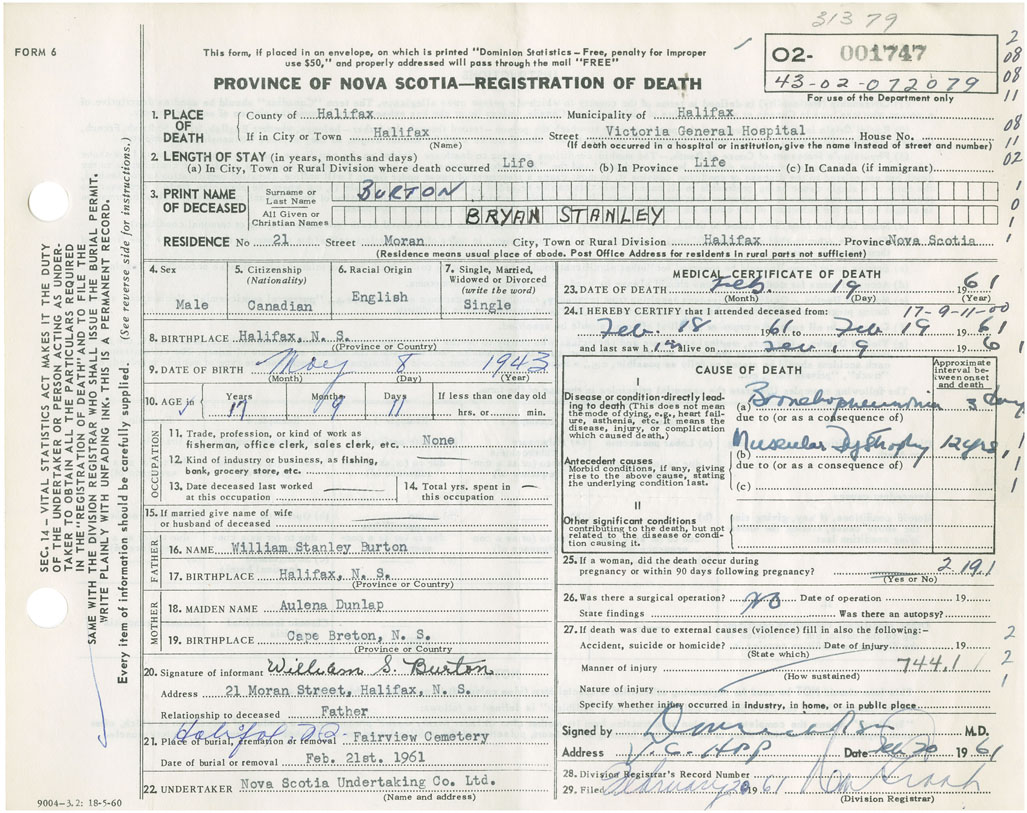 31379
FORM 6
This form, if placed in an envelope, on which is printed "Dominion Statistics – Free, penalty for improper
use $50," and properly addressed will pass through the mail "FREE"
02- 001747
43-02-072079
For use of the Department only
PROVINCE OF NOVA SCOTIA—REGISTRATION OF DEATH
1. PLACE OF DEATH
County of Halifax Municipality of Halifax
If in City or Town Halifax Street Victoria General Hospital House No.
(Name) (If death occurred in a hospital or institution, give the name instead of street and number)
2. LENGTH OF STAY (in years, months and days)
(a) In City, Town or Rural Division where death occurred Life (b) In Province Life (c) In Canada (if immigrant)
3. PRINT NAME OF DECEASED
Surname or Last Name BURTON
All Given or Christian Names BRYAN STANLEY
RESIDENCE No 21 Street Moran City, Town or Rural Division Halifax Province Nova Scotia
(Residence means usual place of abode. Post Office Address for residents in rural parts not sufficient)
4. Sex Male
5. Citizenship (Nationality) Canadian
6. Racial Origin English
7. Single, Married, Widowed or Divorced (write the word) Single
8. BIRTHPLACE Halifax, N. S.
(Province or Country)
9. DATE OF BIRTH May 8 1943
(Month) (Day) (Year)
10. AGE in Years 17 Months 9 Days 11 If less than one day old hrs. or min.
OCCUPATION
11. Trade, profession, or kind of work as
fisherman, office clerk, sales clerk, etc. None
12. Kind of industry or business, as fishing,
bank, grocery store, etc.
13. Date deceased last worked at this occupation
14. Total yrs. spent in this occupation
15. If married give name of wife
or husband of deceased
FATHER
16. NAME William Stanley Burton
17. BIRTHPLACE Halifax, N. S.
(Province or Country)
MOTHER
18. MAIDEN NAME Aulena Dunlap
19. BIRTHPLACE Cape Breton, N. S.
(Province or Country)
20. Signature of informant William S. Burton
Address 21 Moran Street, Halifax, N. S.
Relationship to deceased Father
21. Place of burial, cremation or removal Fairview Cemetery
Date of burial or removal Feb. 21st. 1961
22. UNDERTAKER Nova Scotia Undertaking Co. Ltd.
(Name and address)
9004-3.2: 18-5-60
MEDICAL CERTIFICATE OF DEATH
23. DATE OF DEATH Feb. 19 1961
(Month) (Day) (Year)
17-9-11-00
24. I HEREBY CERTIFY that I attended deceased from:
Feb. 18 1961 to Feb 19 1961
and last saw him alive on Feb. 19 1961
CAUSE OF DEATH
Approximate interval between onset and death
I
Disease or condition directly leading to death (This does not mean the mode of dying, e.g., heart failure, asthenia, etc. It means the disease, injury, or complication which caused death.)
(a) Bronchopneumonia 3 days
due to (or as a consequence of)
Antecedent causes
Morbid conditions, if any, giving rise to the above cause, stating the underlying condition last.
(b) Muscular Dystrophy 12 yrs
due to (or as a consequence of)
(c)
II
Other significant conditions
contributing to the death, but not related to the disease or condition causing it.
25. If a woman, did the death occur during
pregnancy or within 90 days following pregnancy?
(Yes or No)
2 19.1
26. Was there a surgical operation? No Date of operation 19
State findings Was there an autopsy?
27. If death was due to external causes (violence) fill in also the following:–
Accident, suicide or homicide? Date of injury 19
(State which)
Manner of injury 744.1
(How sustained)
Nature of injury
Specify whether injury occurred in industry, in home, or in public place
Signed by M.D.
Address V. G. Hosp Date Feb 20 1961
28. Division Registrar's Record Number
29. Filed February 20 1961
(Division Registrar)
SEC. 14 – VITAL STATISTICS ACT MAKES IT THE DUTY
OF THE UNDERTAKER OR PERSON ACTING AS UNDER-
TAKER TO OBTAIN ALL THE PARTICULARS REQUIRED
IN THE "REGISTRATION OF DEATH" AND TO FILE THE
SAME WITH THE DIVISION REGISTRAR WHO SHALL ISSUE THE BURIAL PERMIT.
WRITE PLAINLY WITH UNFADING INK. THIS IS A PERMANENT RECORD.
Every item of information should be carefully supplied. (See reverse side for instructions.)
2
08
08
11
08
11
02
1
0
1
1
1
1
1
2
2
1